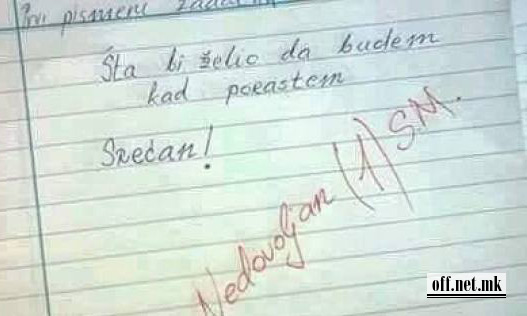 Prvi pismeni zadatak
Šta bi želio da budem
kad porastem
Srećan!
Nedovoljan (1) SM.
off.net.mk